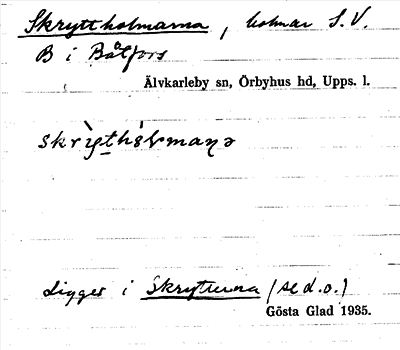 Skryttholmarna, holmar S.V.
B i Båtfors
Älvkarleby sn, Örbyhus hd, Upps. l.
ligger i Skrytterna (se d.o.)
Gösta Glad 1935.